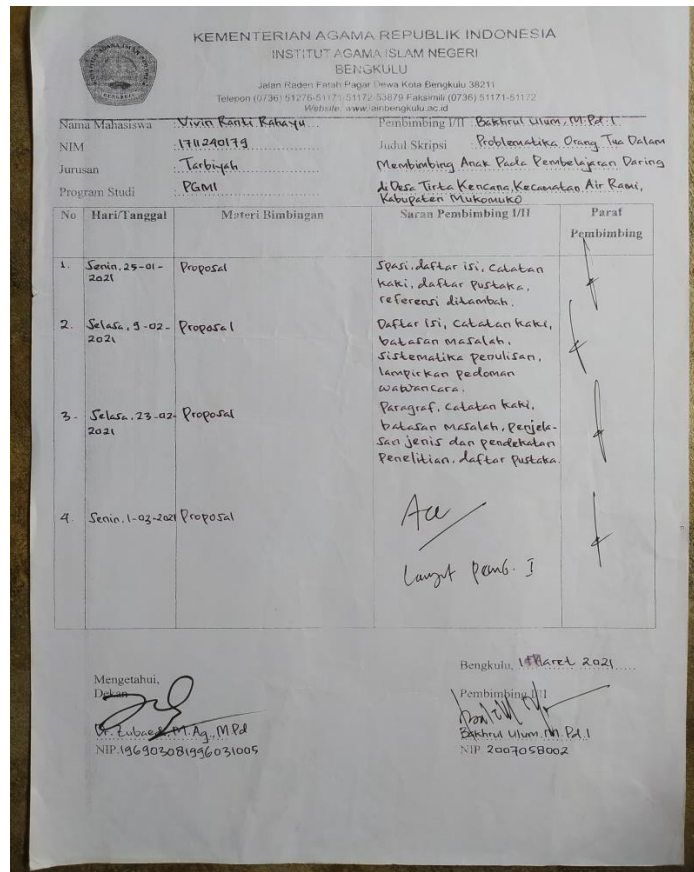 KEMENTERIAN AGAMA REPUBLIK INDONESIA
INSTITUT AGAMA ISLAM NEGERI
BENGKULU
Jalan Raden Fatah Pagar Dewa Kota Bengkulu 38211
Telepon (0736) 51276-51171-51172-53879 Faksimili (0736) 51171-51172
Website: www.iainbengkulu.ac.id
Nama Mahasiswa : Vivin Ranti Rahayu
NIM : 1711240179
Jurusan : Tarbiyah
Program Studi : PGMI
Pembimbing I/II : Bakhrul Ulum, M.Pd.I
Judul Skripsi : Problematika Orang Tua Dalam
Membimbing Anak Pada Pembelajaran Daring
di Desa Tirta Kencana, Kecamatan Air Rami,
Kabupaten Mukomuko
No Hari/Tanggal Materi Bimbingan Saran Pembimbing I/II Paraf
Pembimbing
1. Senin, 25-01-
2021
Proposal
Spasi, daftar isi, catatan
kaki, daftar pustaka,
referensi ditambah.
2. Selasa, 9-02-
2021
Proposal
Daftar isi, catatan kaki,
batasan masalah,
sistematika penulisan,
lampirkan pedoman
wawancara.
3. Selasa, 23-02-
2021
Proposal
Paragraf, catatan kaki,
batasan masalah, penjela-
san jenis dan pendekatan
penelitian, daftar pustaka.
4. Senin, 1-03-2021 Proposal
Acc
Lanjut Pemb. I
Bengkulu, 1 Maret 2021
Mengetahui,
Dekan
Dr. Zubaedi, M.Ag., M.Pd
NIP.196903081996031005
Pembimbing I/II
Bakhrul Ulum, M.Pd.I
NIP. 2007058002